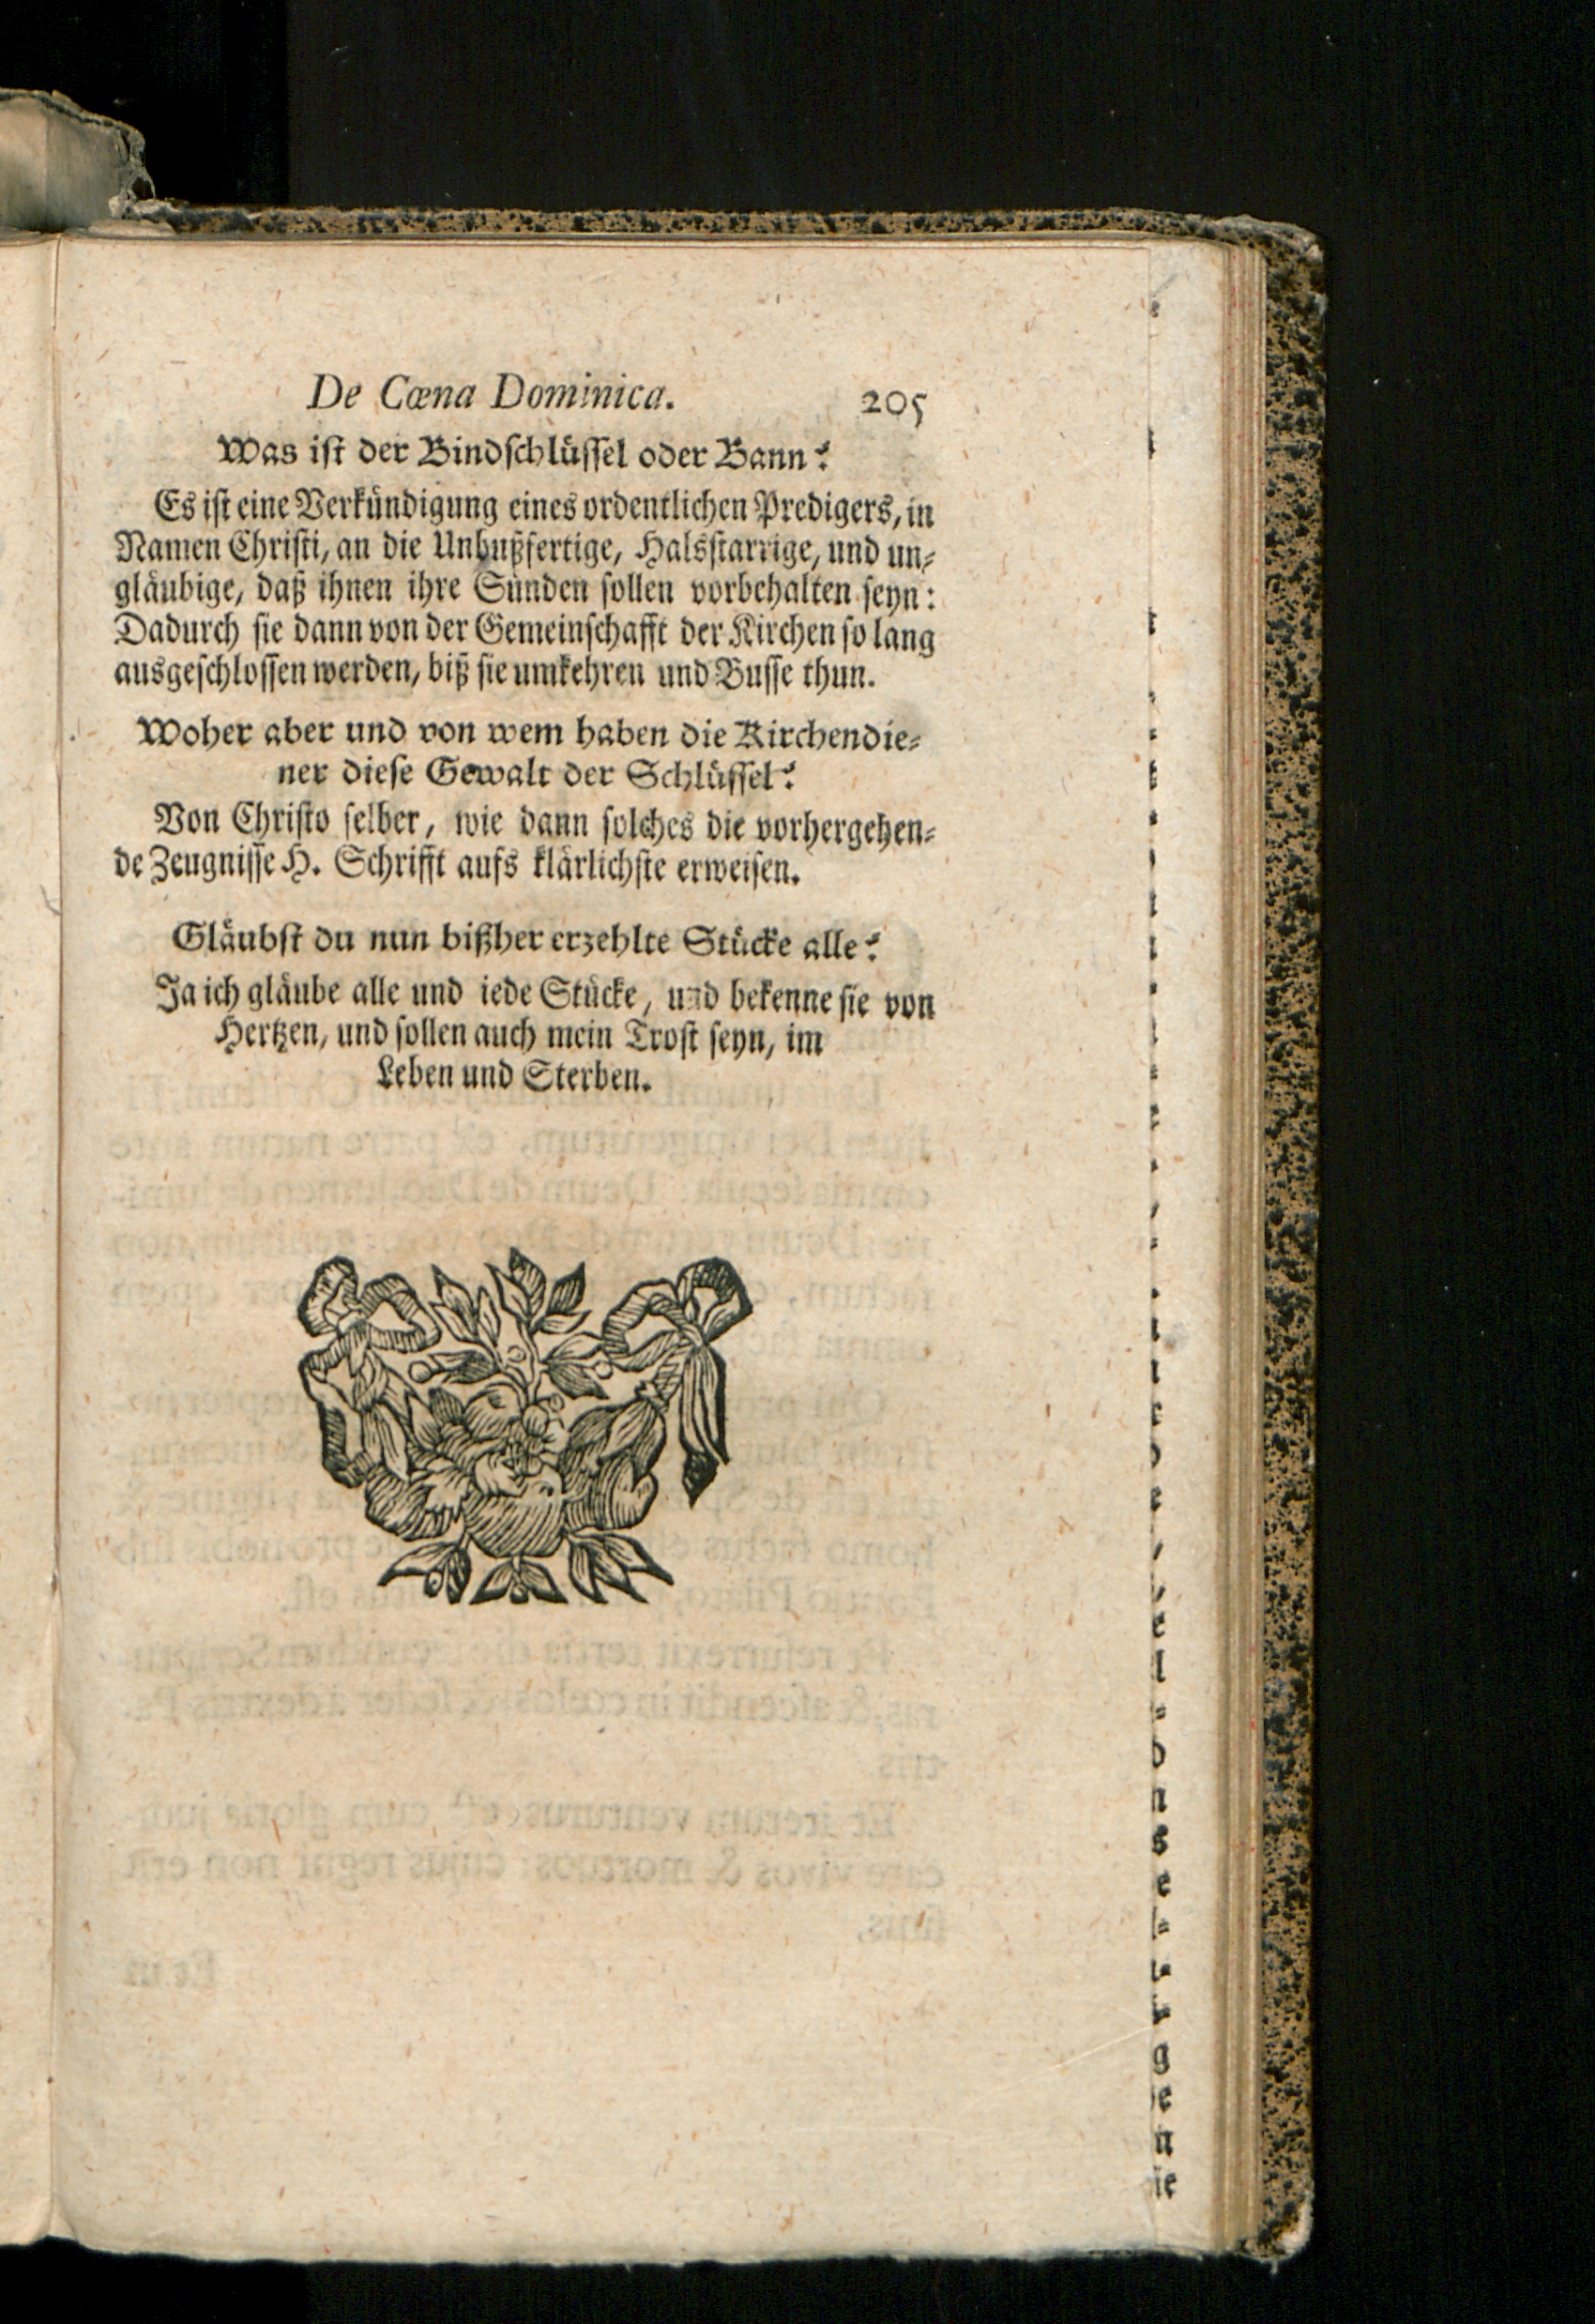 De Cœna Dominica. 205
Was iſt der Bindſchlüſſel oder Bann?
Es iſt eine Verkündigung eines ordentlichen Predigers, in
Namen Chriſti, an die Unbußfertige, Halsſtarrige, und un⸗
gläubige, daß ihnen ihre Sünden ſollen vorbehalten ſeyn:
Dadurch ſie dann von der Gemeinſchafft der Kirchen ſo lang
ausgeſchloſſen werden, biß ſie umkehren und Buſſe thun.
Woher aber und von wem haben die Kirchendie⸗
ner dieſe Gewalt der Schlüſſel?
Von Chriſto ſelber, wie dann ſolches die vorhergehen⸗
de Zeugniſſe H. Schrifft aufs klärlichſte erweiſen.
Gläubſt du nun bißher erzehlte Stücke alle?
Ja ich gläube alle und iede Stücke, und bekenne ſie von
Hertzen, und ſollen auch mein Troſt ſeyn, im
Leben und Sterben.